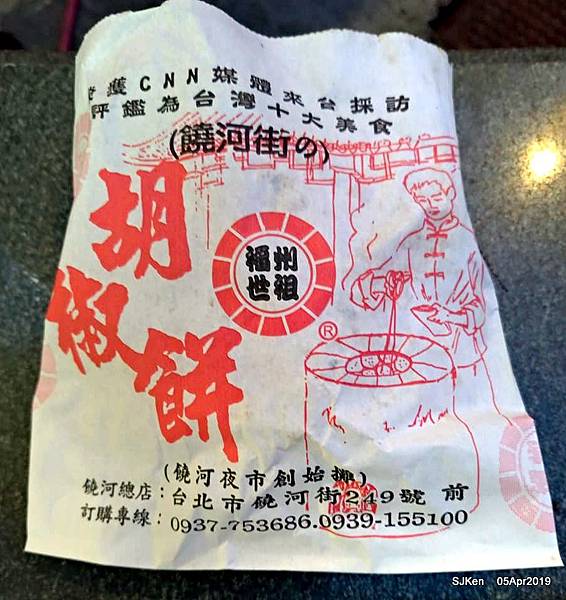 獲CNN媒體來台採訪
評鑑為台灣十大美食
(饒河街の)
胡椒餅
福州
世祖
®
(饒河夜市創始攤)
饒河總店：台北市饒河街249號 前
訂購專線：0937-753686.0939-155100
SJKen 05Apr2019